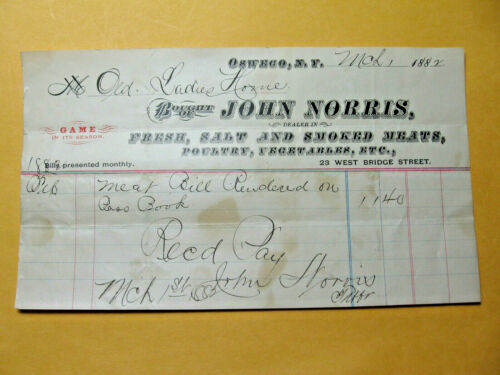 OSWEGO, N. Y. Mch 1 1882
Old Ladies Home
BOUGHT OF JOHN NORRIS,
DEALER IN
GAME
IN ITS SEASON.
FRESH, SALT AND SMOKED MEATS,
POULTRY, VEGETABLES, ETC.,
23 WEST BRIDGE STREET.
Bills presented monthly.
1882
Feb Meat Bill Rendered on
Pass Book 11 40
Recd Pay
Mch 1st John Norris